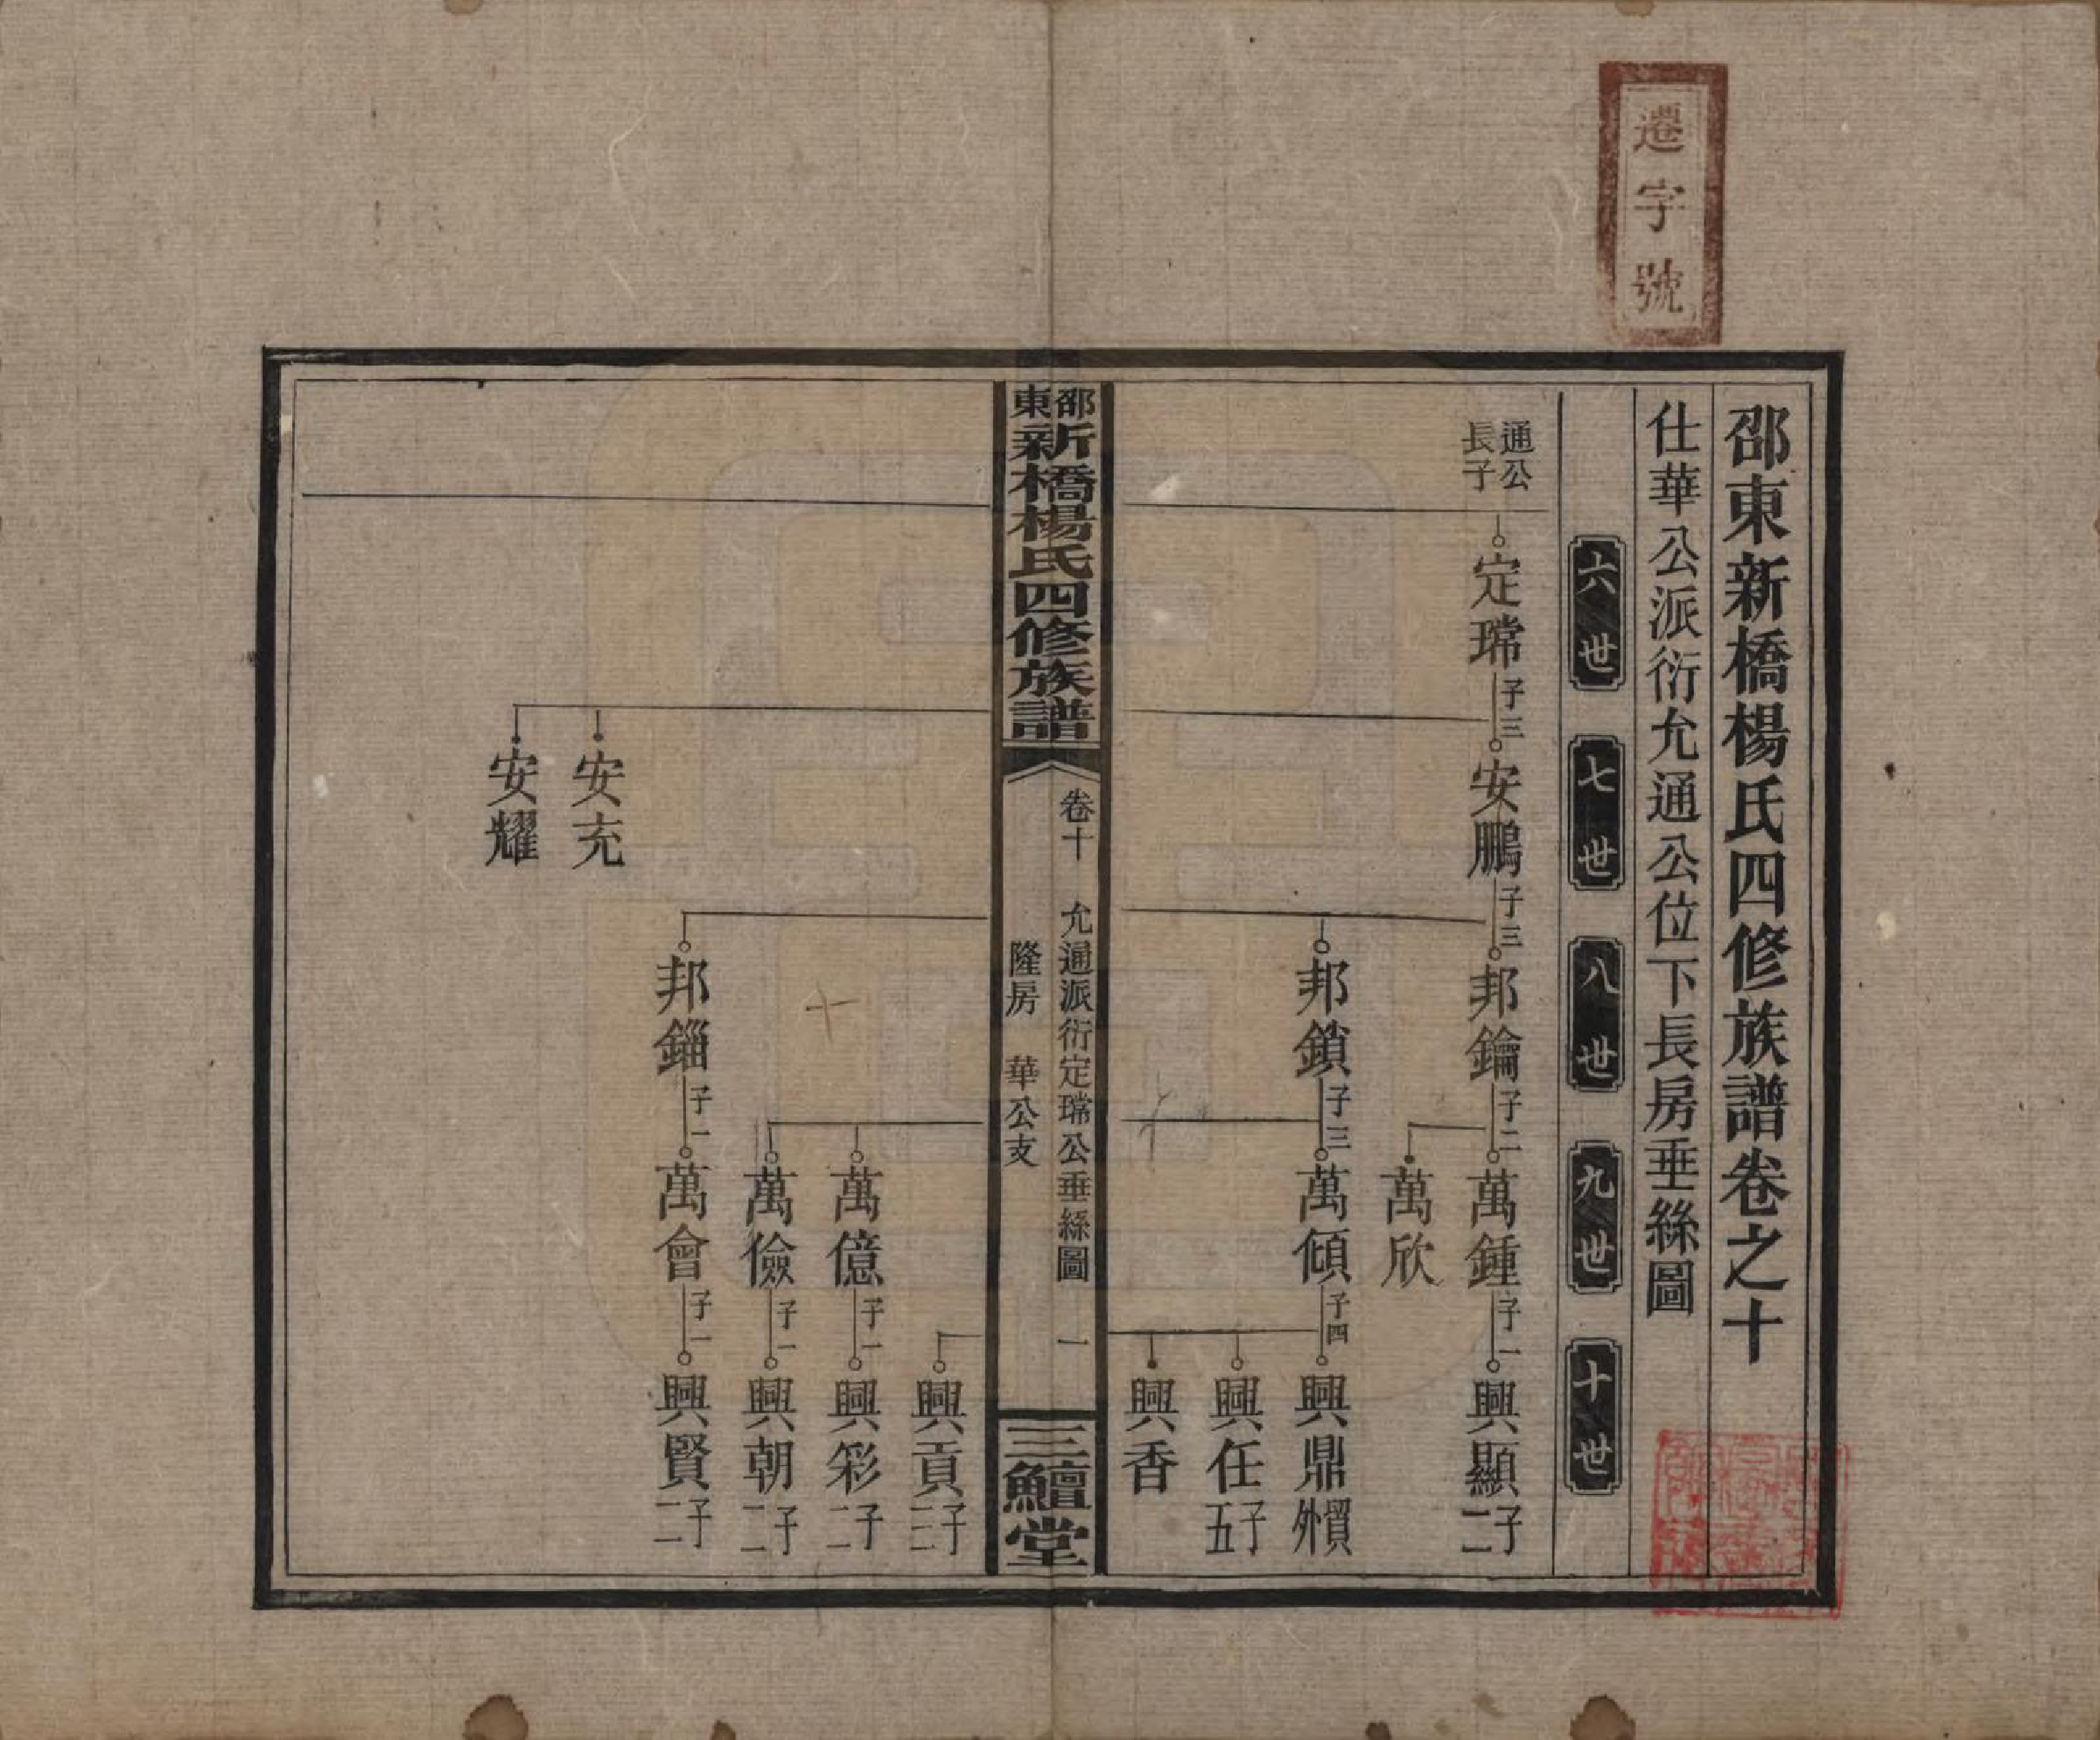 遷字號
邵東新橋楊氏四修族譜卷之十
仕華公派衍允通公位下長房垂絲圖
六世
七世
八世
九世
十世
通公
長子
定瑺
子三
安鵬
子三
邦鑰
子二
萬鍾
子一
興顯
子二
萬欣
邦鎖
子三
萬傾
子四
興鼎
外貿
興任
子五
興香
邵東
新橋楊氏四修族譜
卷十
允通派衍定瑺公垂絲圖
一
隆房
華公支
三鱣堂
興貢
子三
萬億
子一
興彩
子二
萬儉
子一
興朝
子二
邦錙
子一
萬會
子一
興賢
子二
安充
安耀